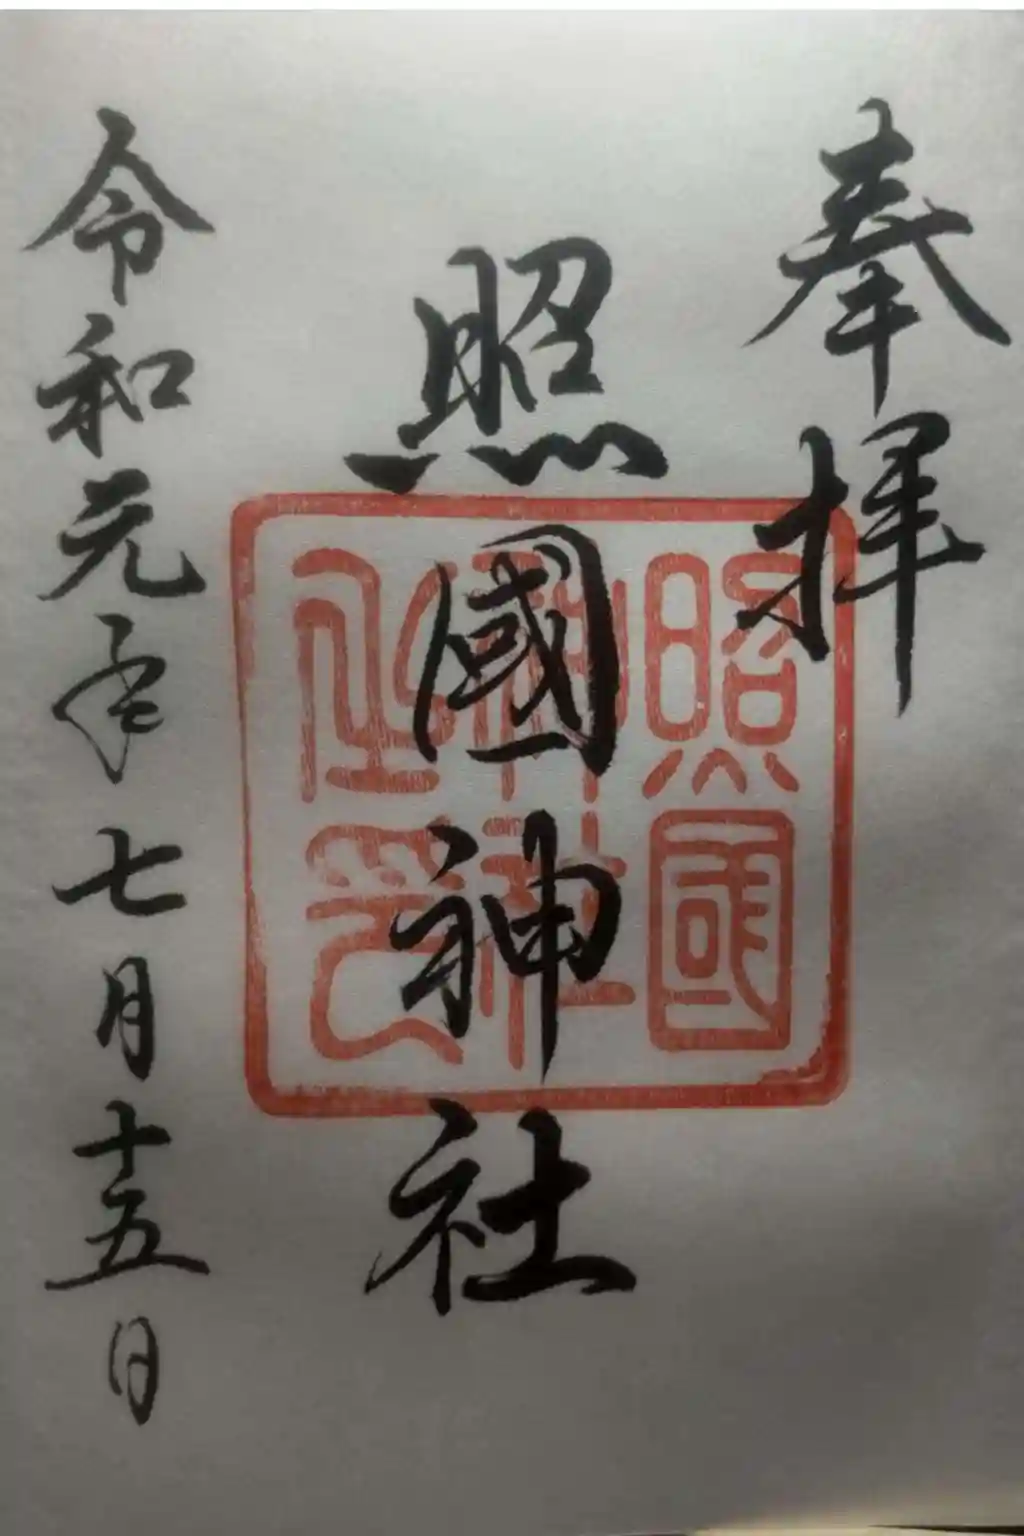 奉拝
照國神社
令和元年七月十五日
照國
神社
之印